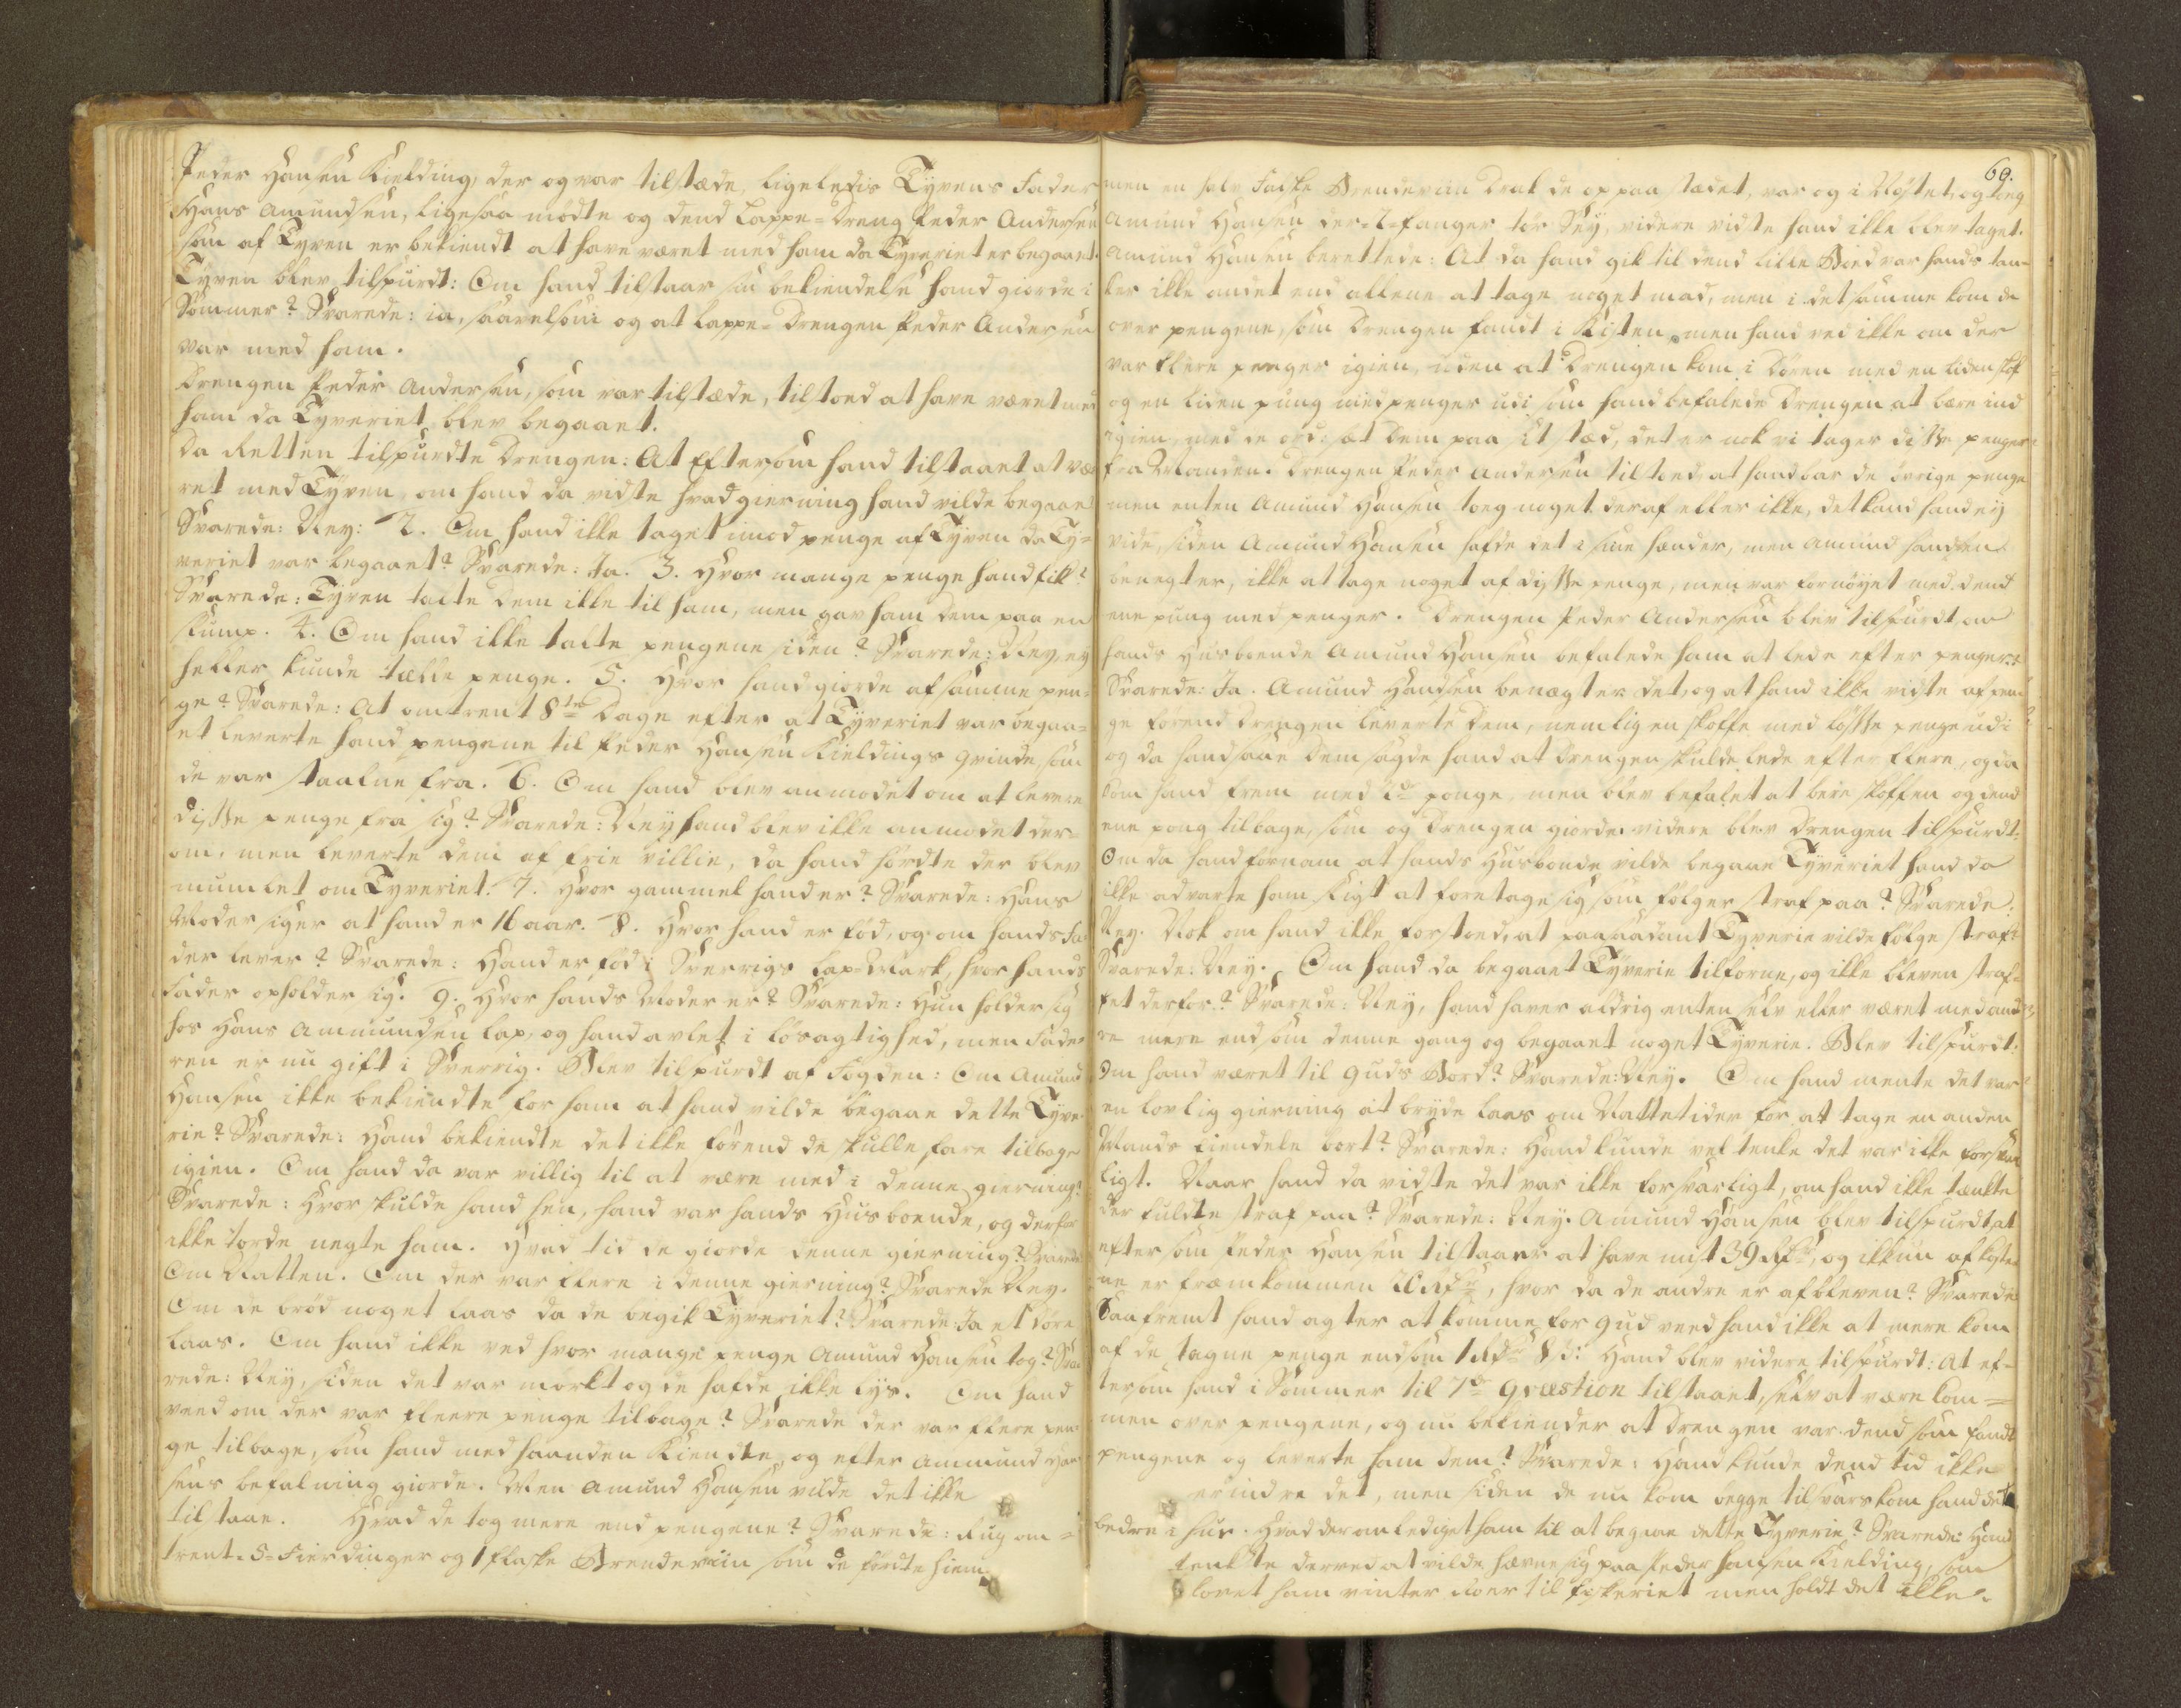 Peder Hansen Kielding, der og var tilstæde, ligeledis Tyvens Fader
Hans Amundsen, ligesaa mødte og dend Lappe-Dreng Peder Andersen
som af Tyven er bekiendt at have været med ham da Tyveriet er begaaet.
Tyven blev tilspurdt: Om hand tilstaar sin bekiendelse hand giorde i
Sommer? Svarede: ia, saavelsom og at Lappe-Drengen Peder Andersen
var med ham.
Drengen Peder Andersen, som var tilstæde, tilstoed at have været med
ham da Tyveriet blev begaaet.
Da Retten tilspurdte Drengen: At Eftersom hand tilstaaet at væ-
ret med Tyven, om hand da vidste hvad gierning hand vilde begaae?
Svarede: Ney: 2. Om hand ikke taget imod penge af Tyven da Ty-
veriet var begaaet? Svarede: Ja. 3. Hvor mange penge hand fik?
Svarede: Tyven talte dem ikke til ham, men gav ham dem paa en
Klump. 4. Om hand ikke talte pengene siden? Svarede: Ney, ey
heller kunde tælle penge. 5. Hvor hand giorde af samme pen-
ge? Svarede: At omtrent 8te Dage efter at Tyveriet var begaa-
et leverte hand pengene til Peder Hansen Kieldings qvinde, som
de var staalne fra. 6. Om hand blev anmodet om at levere
disse penge fra sig? Svarede: Ney hand blev ikke anmodet der-
om, men leverte dem af frie villie, da hand hørdte der blev
mumlet om Tyveriet. 7. Hvor gammel hand er? Svarede: Hans
Moder siger at hand er 16 aar. 8. Hvor hand er fød, og om hands Fa-
der lever? Svarede: Hand er fød i Sverrigs Lap-Mark, hvor hands
Fader opholder sig. 9. Hvor hands Moder er? Svarede: Hun holder sig
hos Hans Ammundsen Lap, og hand avlet i løsagtighed, men Fade-
ren er nu gift i Sverrig. Blev tilspurdt af Fogden: Om Amund
Hansen ikke bekiendte for ham at hand vilde begaae dette Tyve-
rie? Svarede: Hand bekiendte det ikke førend de skulle fare tilbage
igien. Om hand da var villig til at være med i denne gierning?
Svarede: Hvor skulde hand hen, hand var hands Husboende, og derfor
ikke torde negte ham. Hvad tid de giorde denne gierning? Svarede
Om Natten. Om der var flere i denne gierning? Svarede Ney.
Om de brød noget Laas da de begik Tyveriet? Svarede: Ja et Døre
Laas. Om hand ikke ved hvor mange penge Amund Hansen tog? Sva-
rede: Ney, siden det var mørkt og de hafde ikke lys. Om hand
veed om der var fleere penge tilbage? Svarede der var flere pen-
ge tilbage, som hand med haanden Kiendte, og efter Ammund Han-
sens befalning giorde. Men Amund Hansen vilde det ikke
tilstaae. Hvad de tog mere end pengene? Svarede: Rug om-
trent 5 Fierdinger og 1 flaske Brendeviin som de førdte hiem
60.
men en halv Flaske Brendeviin Drak de op paa stædet, var og i Nøstet, og toeg
Amund Hansen der 2 fanger tør Sey, videre vidste hand ikke blev taget.
Amund Hansen berettede: At da hand gik til dend lille Boed var hands tan-
ker ikke andet end allene at tage noget mad, men i det samme kom de
over pengene, som Drengen fandt i Kisten, men hand ved ikke om der
var flere penger igien, uden at Drengen kom i Døren med en liden skof
og en liden pung med penger udi som hand befalede Drengen at bære ind
igien, med de ord: sæt dem paa it stæd, det er nok vi tager disse penger
fra Manden. Drengen Peder Andersen tilstoed, at hand bar de øvrige penge
men enten Amund Hansen toeg noget deraf eller ikke, det kand hand ey
vide, siden Amund Hansen hafde det i sine hænder, men Amund Handsen
benegter, ikke at tage noget af disse penge, men var fornøyet med dend
ene pung med penger. Drengen Peder Andersen blev tilspurdt, om
hands Husboende Amund Hansen befalede ham at lede efter penger?
Svarede: Ja. Amund Handsen benægter det, og at hand ikke vidste af pen-
ge førend Drengen leverte dem, nemlig en skoffe med løsse penge udi
og da hand saae dem sagde hand at Drengen skulde lede efter flere, og da
kom hand frem med 2de ponge, men blev befalet at bere skoffen og dend
ene pong tilbage, som og Drengen giorde. videre blev Drengen tilspurdt:
Om da hand fornam at hands Husbonde vilde begaae Tyveriet hand da
ikke advarte ham sligt at foretage sig som følger straf paa? Svarede:
Ney. Nok om hand ikke forstoed, at paa saadant Tyverie vilde følge straf?
Svarede: Ney. Om hand da begaaet Tyverie tilforne, og ikke bleven straf-
fet derfor? Svarede: Ney, hand haver aldrig enten selv eller været med and-
re mere end som denne gang og begaaet noget Tyverie. Blev tilspurdt:
Om hand været til Guds Bord? Svarede: Ney. Om hand mente det var
en lovlig gierning at bryde laas om Nattetider for at tage en anden
Mands Eiendele bort? Svarede: Hand kunde vel tenke det var ikke forsvar-
ligt. Naar hand da vidste det var ikke forsvarligt, om hand ikke tænkte
der fuldte straf paa? Svarede: Ney. Amund Hansen blev tilspurdt, at
eftersom Peder Hansen tilstaaer at have mist 39 Rdr, og ikkun af koste-
ne er fræmkommen 20 Rdr, hvor da de andre er afbleven? Svarede
Saafremt hand agter at komme for Gud veed hand ikke at mere kom
af de tagne penge end som 1 Rdr 8 ß: Hand blev videre tilspurdt: At ef-
tersom hand i Sommer til 7de Qvæstion tilstaaet, selv at være kom-
men over pengene, og nu bekiender at Drengen var dend som fandt
pengene og leverte ham dem? Svarede: Hand kunde dend tid ikke
erindre det, men siden de nu kom begge til svars kom hand det
bedre i hue. Hvad der anlediget ham til at begaae dette Tyverie? Svarede: Hand
tenkte derved at vilde hævne sig paa Peder Hansen Kielding, som
lovet ham vinter til fiskeriet men holdt det ikke.